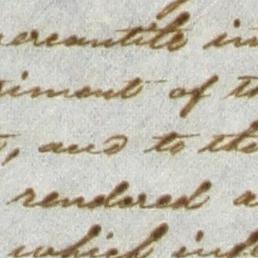 mercantile in
timent of th
, and to the
rendered a
which infl